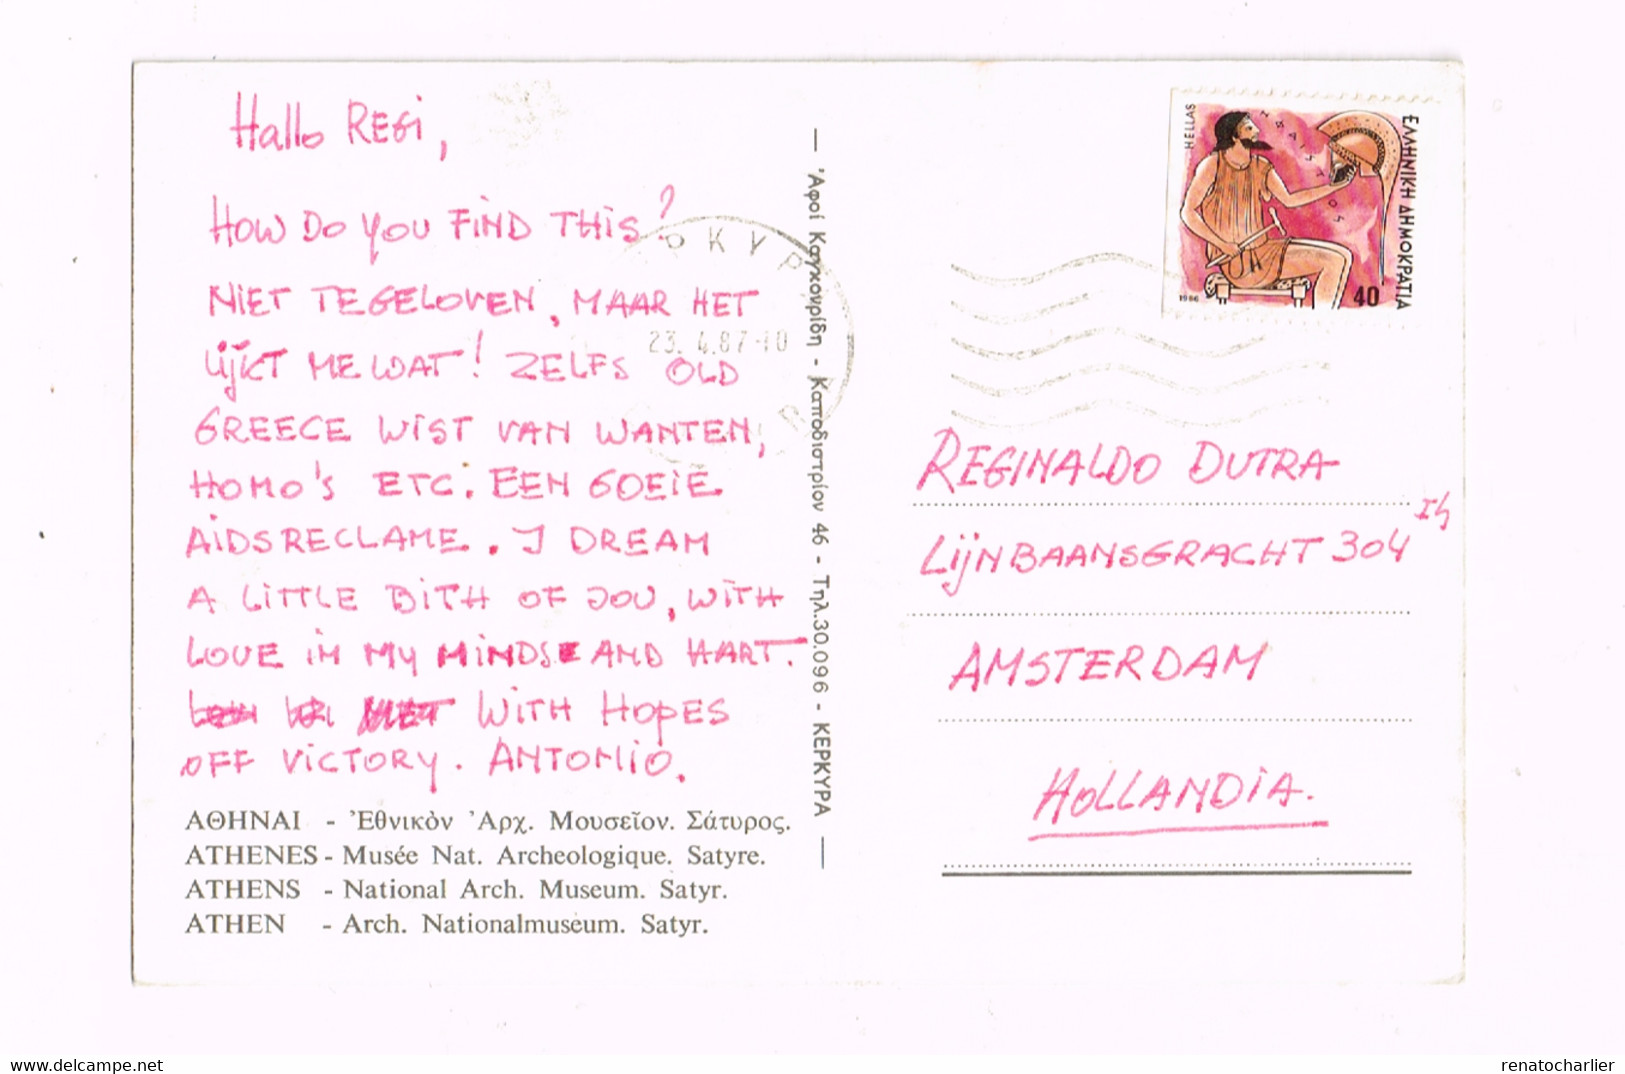 Hallo REGI,
HOW DO YOU FIND THIS?
NIET TE GELOVEN, MAAR HET
LIJKT ME WAT! ZELFS OLD
GREECE WIST VAN WANTEN,
HOMO'S ETC. EEN GOEIE
AIDSRECLAME. I DREAM
A LITTLE BITH OF JOU, WITH
LOVE IN MY MINDSE AND HART.
WITH HOPES
OFF VICTORY. ANTONIO.
ΑΘΗΝΑΙ - Ἐθνικὸν Ἀρχ. Μουσεῖον. Σάτυρος.
ATHENES - Musée Nat. Archeologique. Satyre.
ATHENS - National Arch. Museum. Satyr.
ATHEN - Arch. Nationalmuseum. Satyr.
— Ἀφοί Καγκουρίδη - Καποδιστρίου 46 - Τηλ.30.096 - ΚΕΡΚΥΡΑ —
ΡΚΥΡ
23. 4.87-10
HELLAS
ΗΦΑΙΣΤΟΣ
ΕΛΛΗΝΙΚΗ ΔΗΜΟΚΡΑΤΙΑ
1986
40
REGINALDO DUTRA
LIJNBAANSGRACHT 304
AMSTERDAM
HOLLANDIA.
renatocharlier